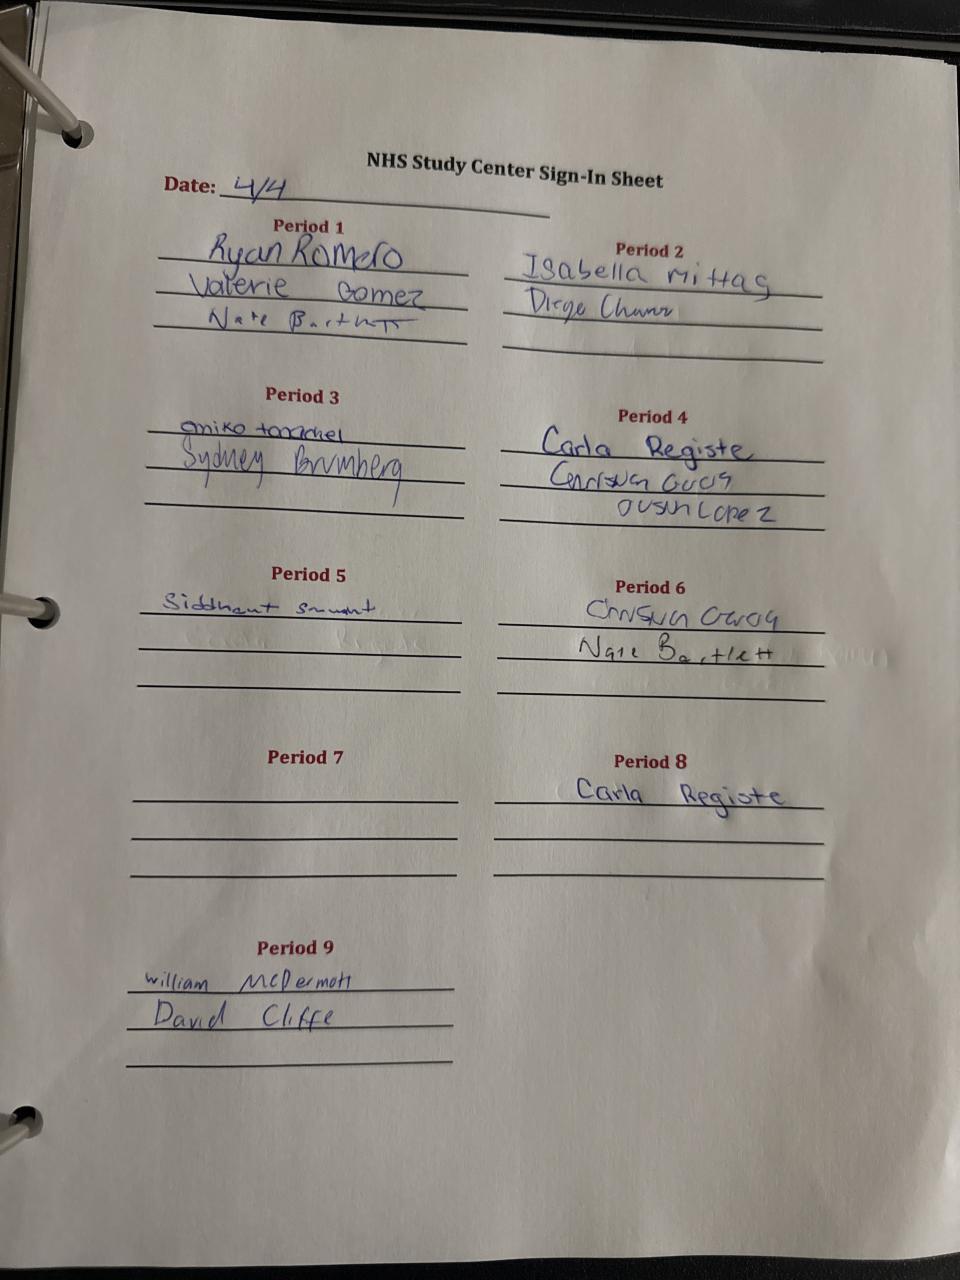 NHS Study Center Sign-In Sheet
Date: 4/4
Period 1
Ryan Romero
Valerie Gomez
Nate Bartlett
Period 2
Isabella Mittag
Diego
Period 3
Sydney Brumberg
Period 4
Carla Registe
Lopez
Period 5
Siddhant
Period 6
Nate Bartlett
Period 7
Period 8
Carla Registe
Period 9
William McDermott
David Cliffe